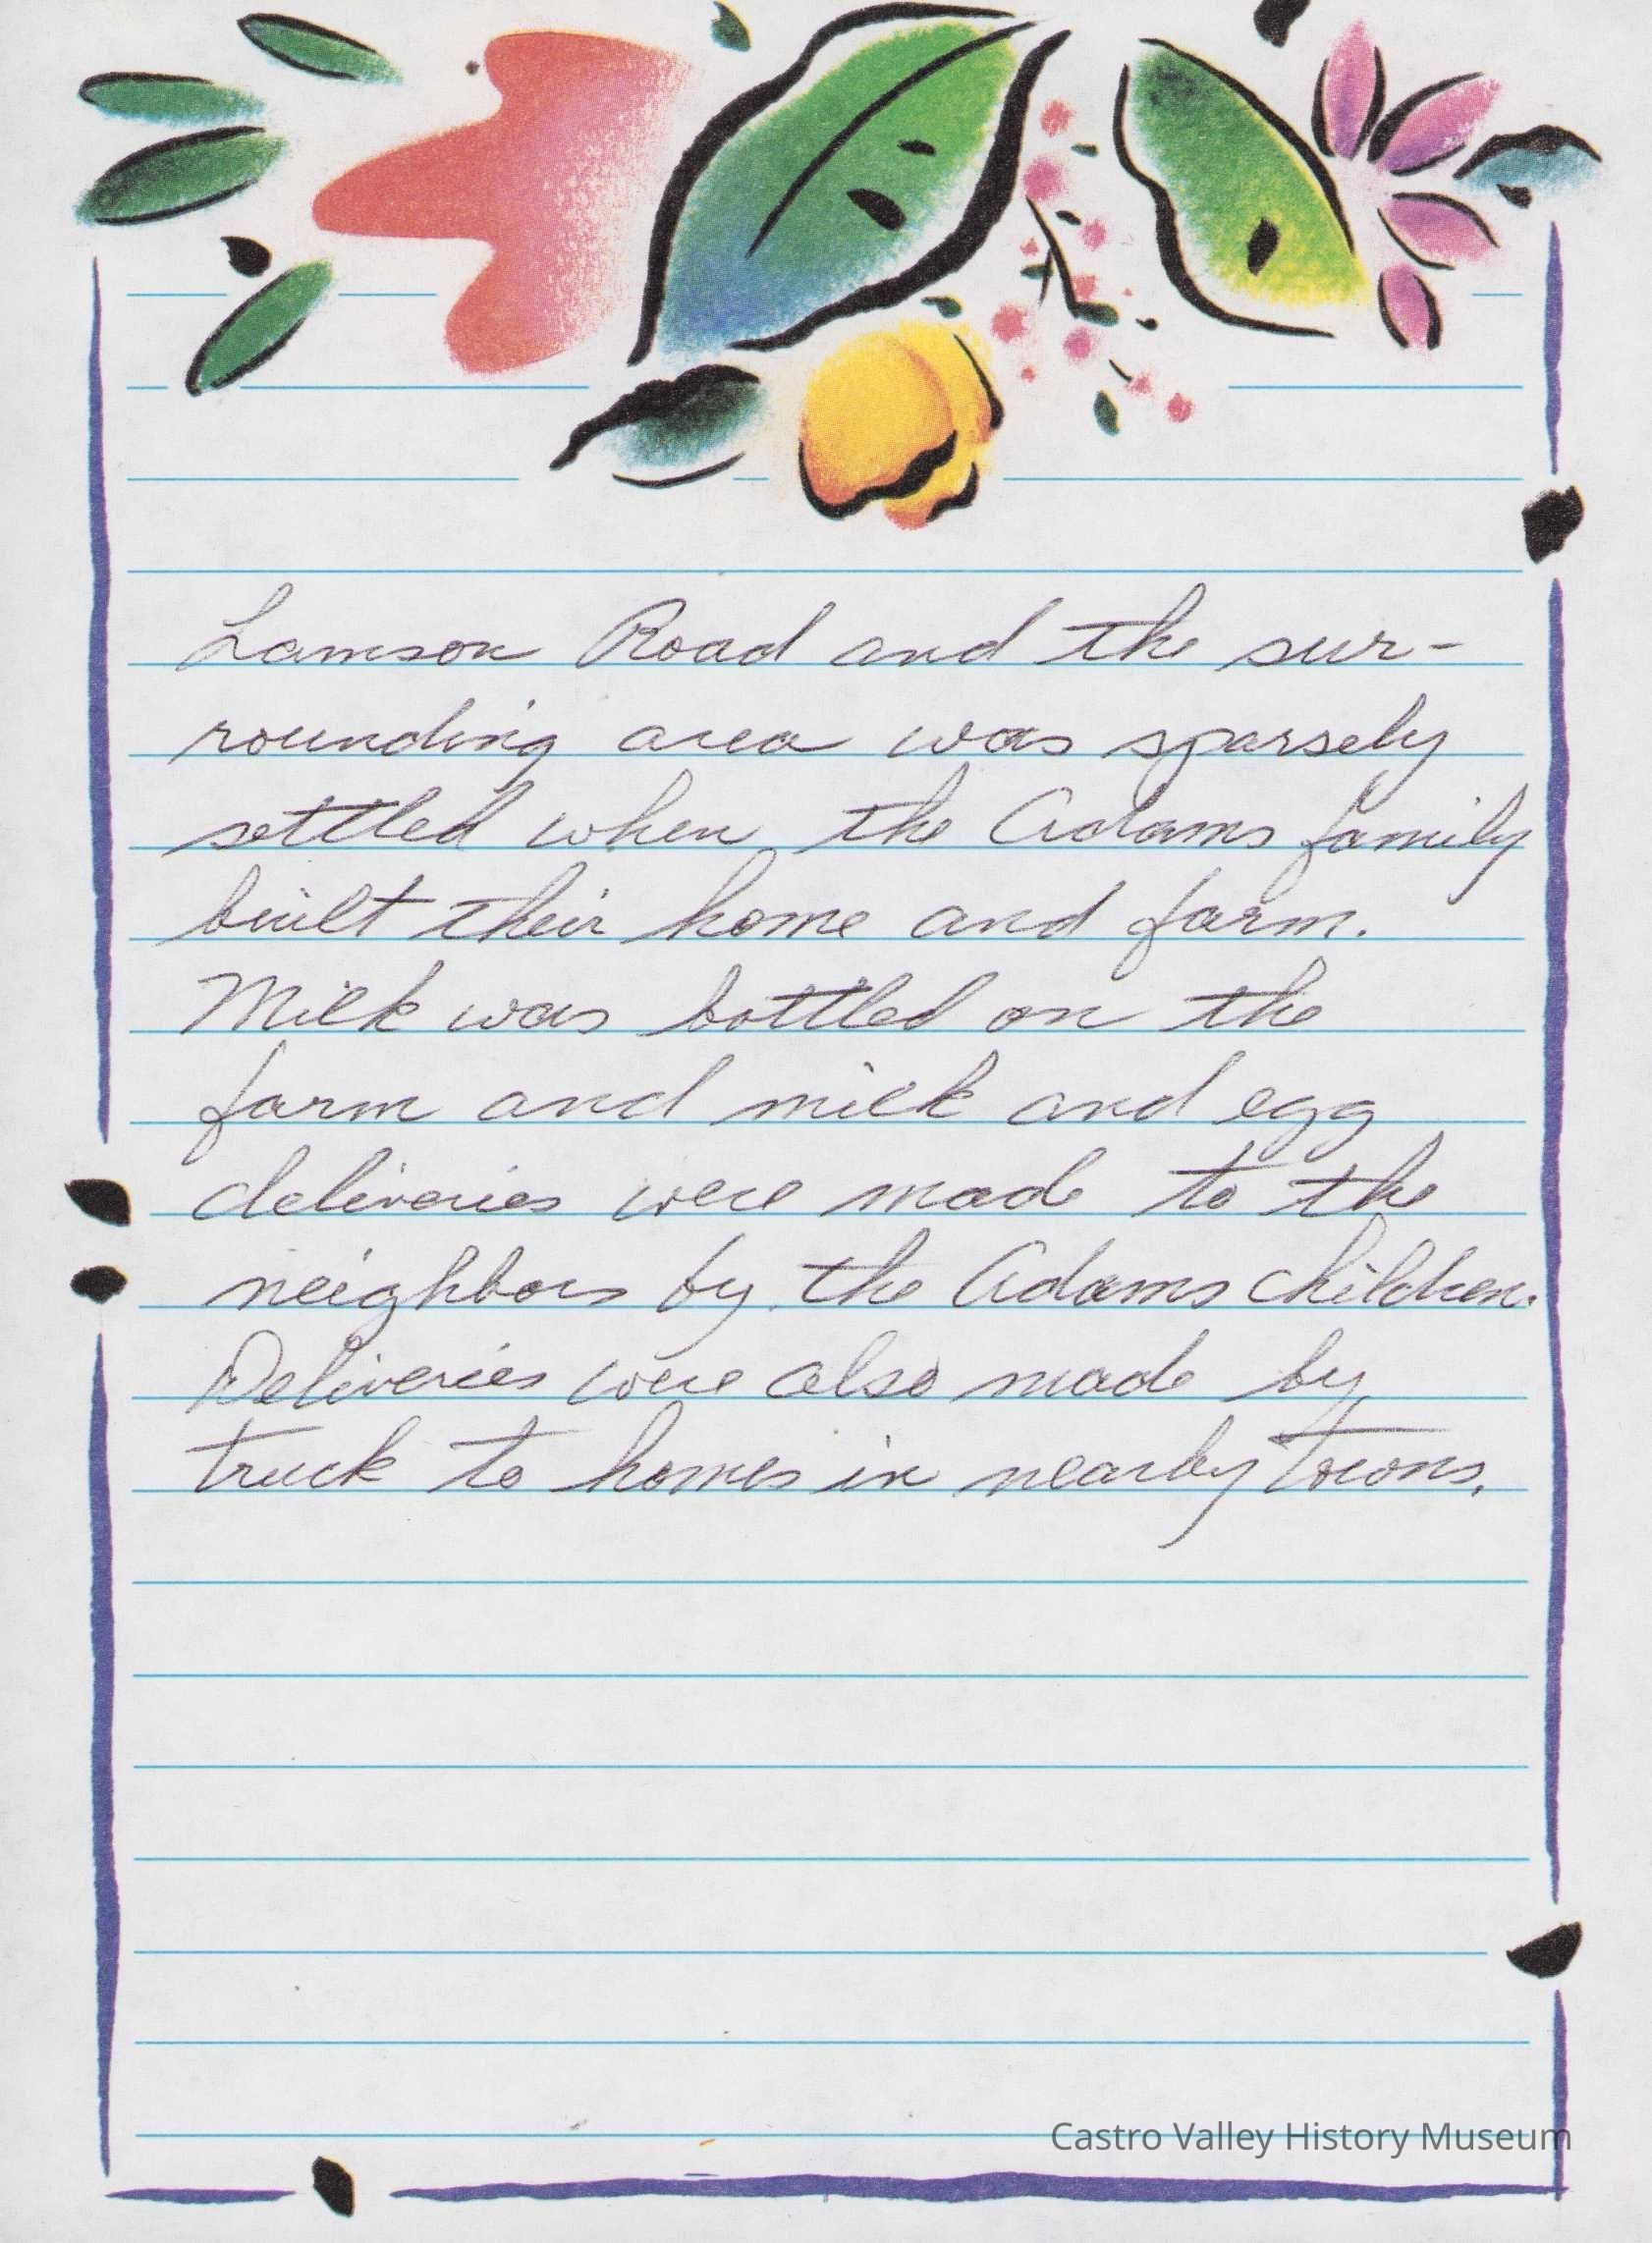 Lamson Road and the sur-
rounding area was sparsely
settled when the Adams family
built their home and farm.
Milk was bottled on the
farm and milk and egg
deliveries were made to the
neighbors by the Adams children.
Deliveries were also made by
truck to homes in nearby towns.
Castro Valley History Museum